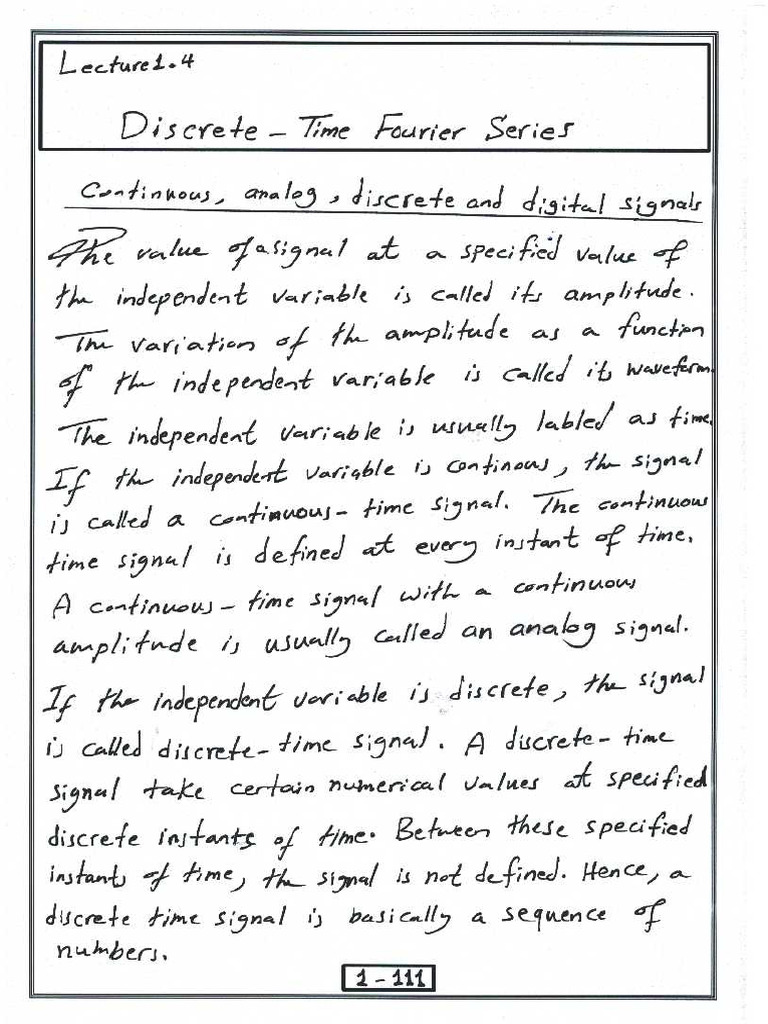 Lecture 1.4
Discrete - Time Fourier Series
Continuous, analog, discrete and digital signals
The value of a signal at a specified value of
the independent variable is called its amplitude.
The variation of the amplitude as a function
of the independent variable is called its waveform.
The independent variable is usually labled as time.
If the independent variable is continous, the signal
is called a continuous-time signal. The continuous
time signal is defined at every instant of time.
A continuous-time signal with a continuous
amplitude is usually called an analog signal.
If the independent variable is discrete, the signal
is called discrete-time signal. A discrete-time
signal take certain numerical values at specified
discrete instants of time. Between these specified
instants of time, the signal is not defined. Hence, a
discrete time signal is basically a sequence of
numbers.
1 - 111